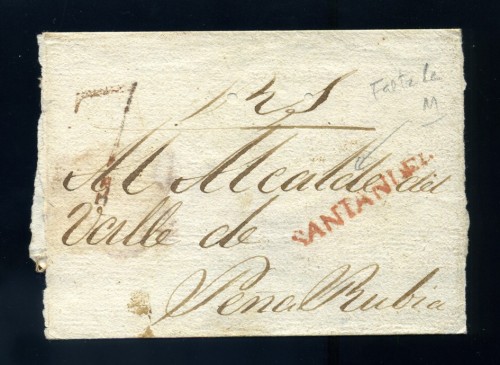 7
Falta la
M
Al Alcalde del
SANTANDER
Valle de
Peña Rubia